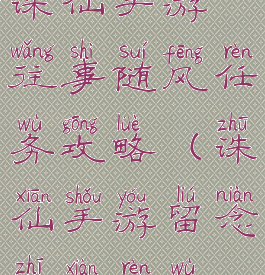 诛仙手游
wǎng shì suí fēng rèn
往事随风任
wù gōng lüè zhū
务攻略（诛
xiān shǒu yóu liú niàn
仙手游留念
zhī xiàn rèn wù